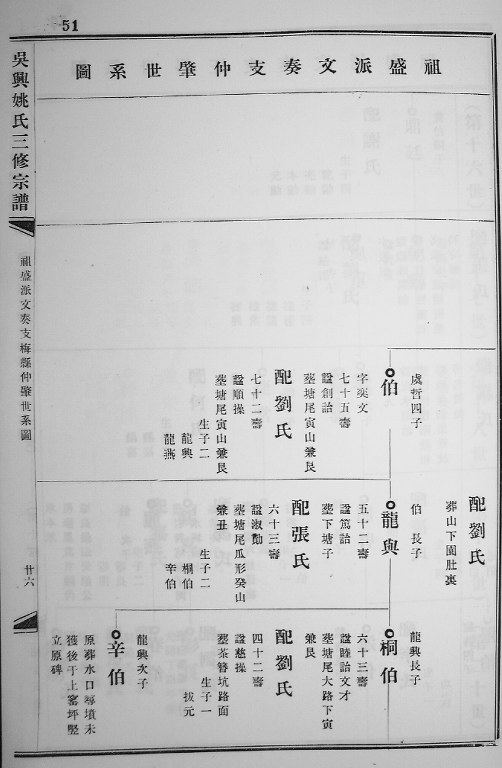 51
祖盛派文奏支仲肇世系圖
吳興姚氏三修宗譜
祖盛派文奏支梅縣仲肇世系圖
廿六
伯
虞哲四子
字奕文
七十五壽
諡創詒
塟塘尾寅山兼艮
配劉氏
七十二壽
諡順操
塟塘尾寅山兼艮
生子二
龍興
龍燕
配劉氏
葬山下園肚裏
龍興
伯長子
五十二壽
諡篤詒
塟下塘子
配張氏
六十三壽
諡淑勤
塟塘尾瓜形癸山
兼丑
生子二
桐伯
辛伯
桐伯
龍興長子
六十三壽
諡睦詒文才
塟塘尾大路下寅
兼艮
配劉氏
四十二壽
諡慈操
塟茶簪坑路面
生子一
拔元
辛伯
龍興次子
原葬水口尋墳未
獲後于上窰坪竪
立原碑